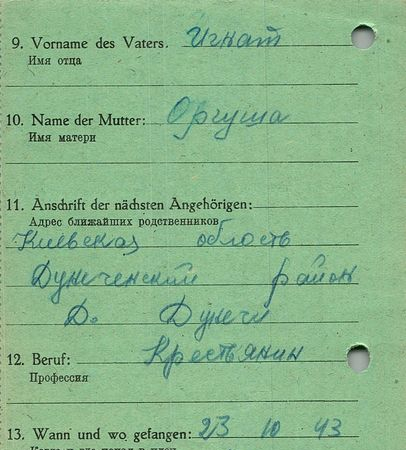 9. Vorname des Vaters. Игнат
Имя отца
10. Name der Mutter: Оргуша
Имя матери
11. Anschrift der nächsten Angehörigen:
Адрес ближайших родственников
Киевская область
район
Д.
12. Beruf: Крестьянин
Профессия
13. Wann und wo gefangen: 23 10 43